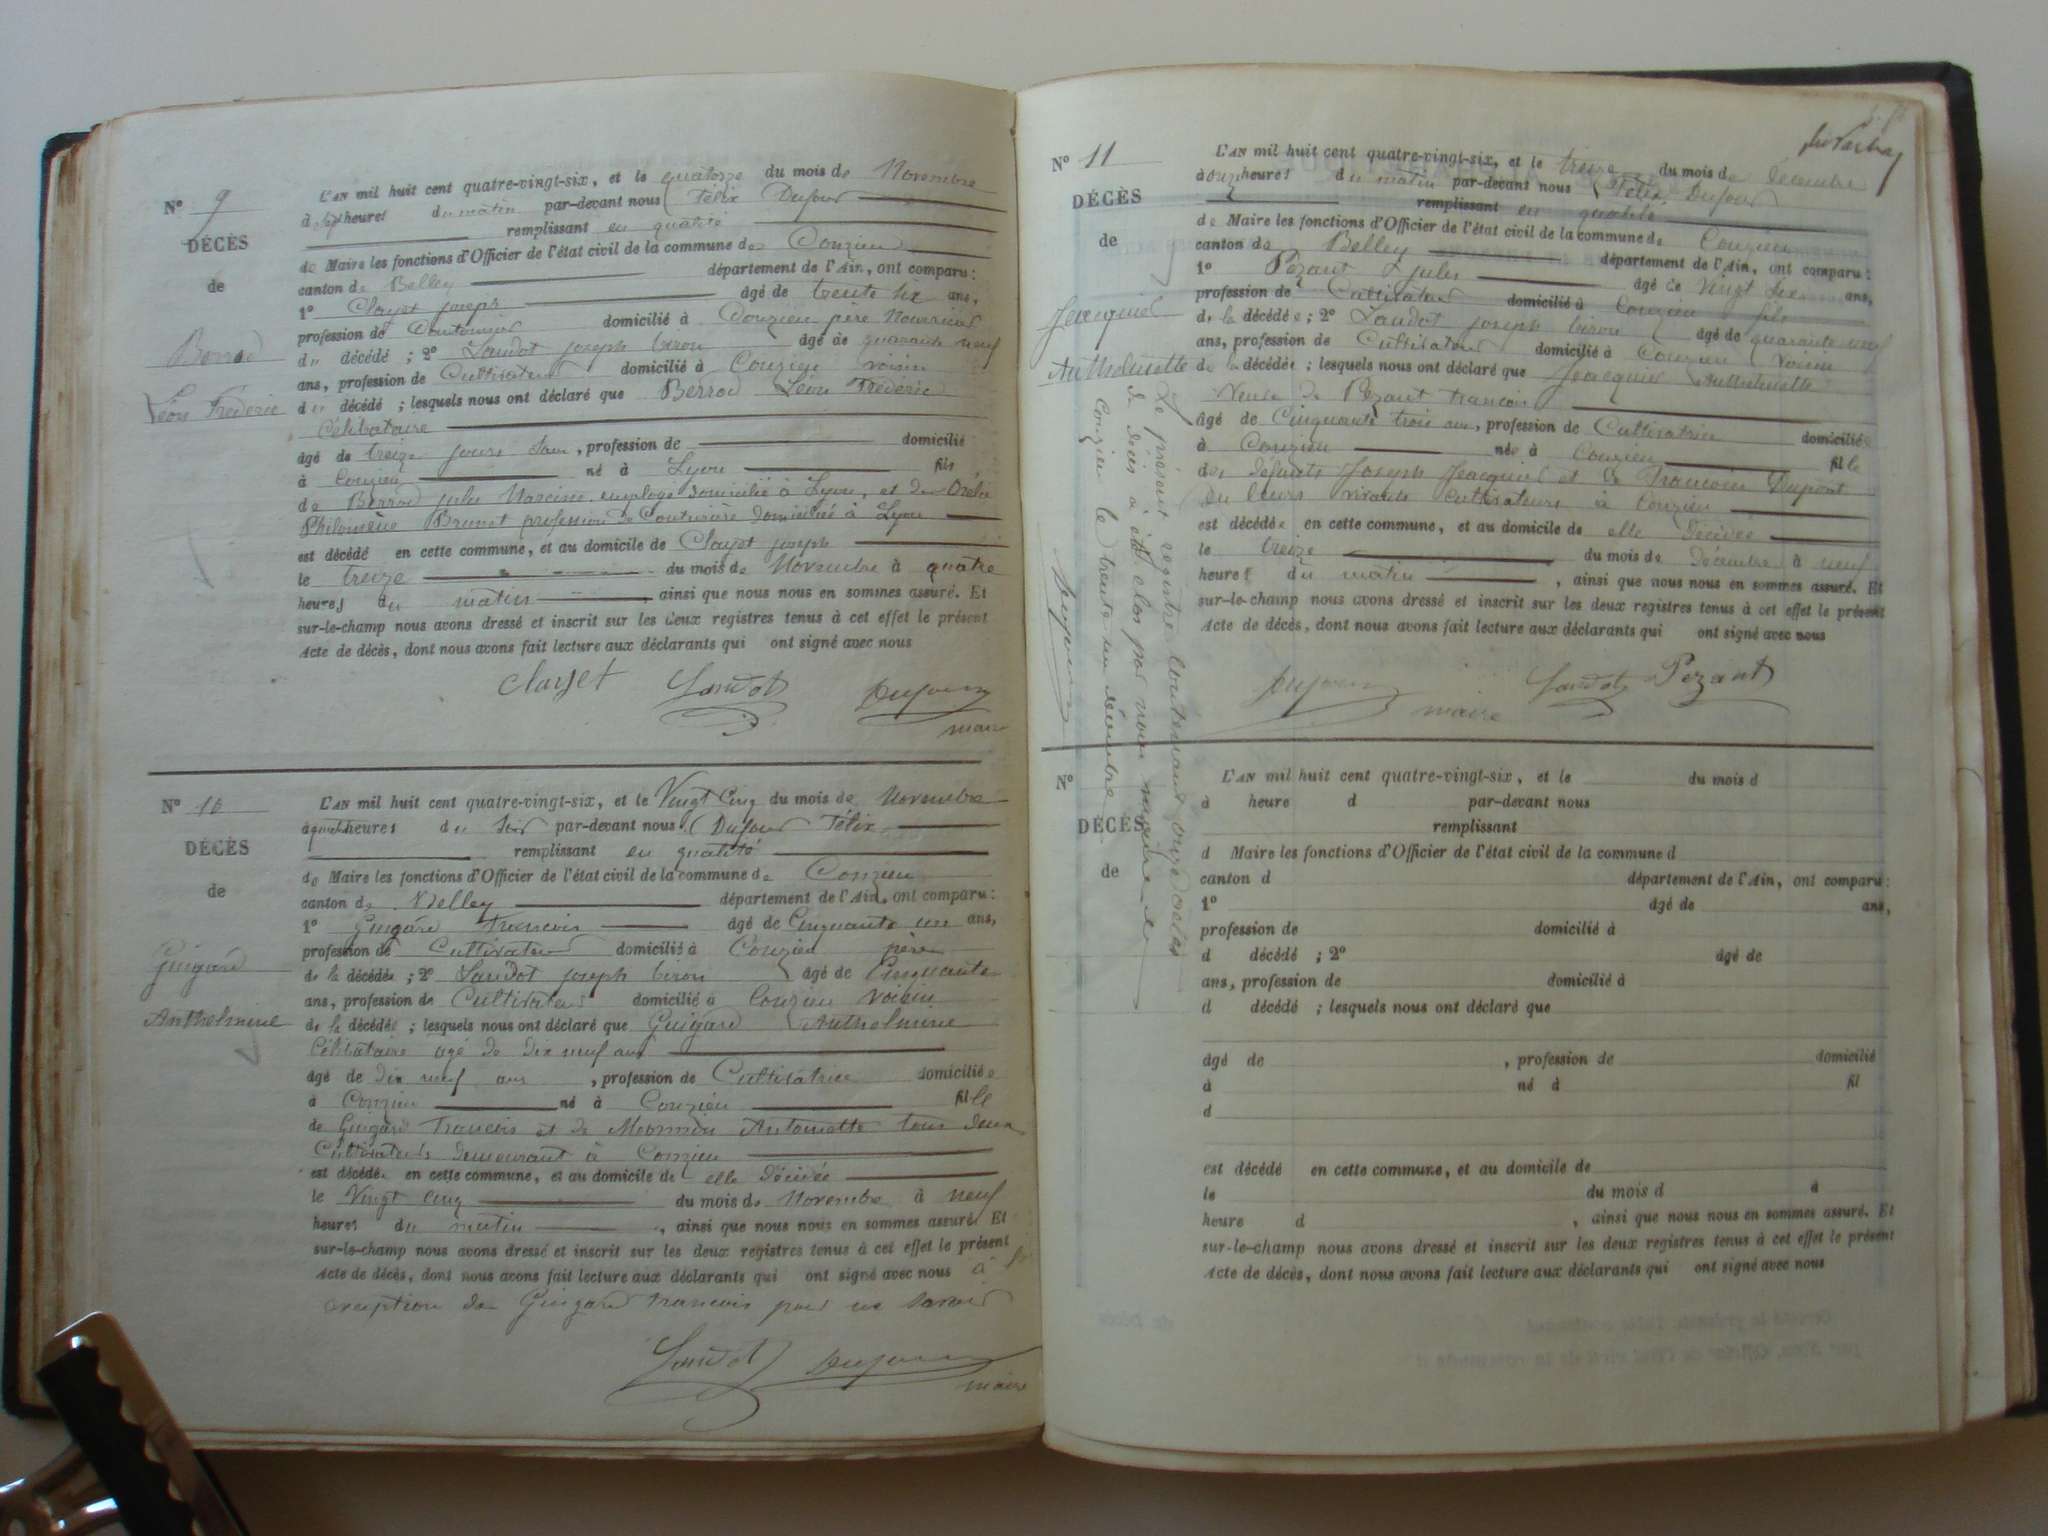 N° 9
DÉCÈS
de
Berrod
Léon Fréderic
L'AN mil huit cent quatre-vingt-six, et le quatorze du mois de Novembre
à sept heures du matin par-devant nous Félix Dufour
remplissant en qualité
de Maire les fonctions d'Officier de l'état civil de la commune de Conzieu
canton de Belley département de l'Ain, ont comparu:
1° Clayet joseph âgé de trente six ans,
profession de Cantonnier domicilié à Conzieu père Nourricier
du décédé ; 2° Landot joseph biron âgé de quarante neuf
ans, profession de Cultivateur domicilié à Conzieu voisin
du décédé ; lesquels nous ont déclaré que Berrod Léon Fréderic
Célibataire
âgé de treize jours , profession de domicilié
à Conzieu né à Lyon fils
de Berrod jules Narcisse employé domicilié à Lyon, et de
Philomène Brunet profession de Couturière domiciliée à Lyon
est décédé en cette commune, et au domicile de Clayet joseph
le treize du mois de Novembre à quatre
heures du matin ainsi que nous nous en sommes assuré. Et
sur-le-champ nous avons dressé et inscrit sur les deux registres tenus à cet effet le présent
Acte de décès, dont nous avons fait lecture aux déclarants qui ont signé avec nous
Clayet Landot Dufour
maire
N° 10
DÉCÈS
de
Guigard
Anthelmine
L'AN mil huit cent quatre-vingt-six, et le Vingt Cinq du mois de Novembre
à heures du soir par-devant nous Dufour Félix
remplissant en qualité
de Maire les fonctions d'Officier de l'état civil de la commune de Conzieu
canton de Belley département de l'Ain, ont comparu:
1° Guigard francois âgé de Cinquante un ans,
profession de Cultivateur domicilié à Conzieu père
de la décédée ; 2° Landot joseph biron âgé de Cinquante
ans, profession de Cultivateur domicilié à Conzieu voisin
de la décédée ; lesquels nous ont déclaré que Guigard Anthelmine
Célibataire agé de dix neuf ans
âgé de dix neuf ans , profession de Cultivatrice domiciliée
à Conzieu né à Conzieu fille
de Guigard francois et de Antoinette tous deux
Cultivateurs demeurant à Conzieu
est décédée en cette commune, et au domicile de elle décédée
le Vingt cinq du mois de Novembre à neuf
heures du matin , ainsi que nous nous en sommes assuré. Et
sur-le-champ nous avons dressé et inscrit sur les deux registres tenus à cet effet le présent
Acte de décès, dont nous avons fait lecture aux déclarants qui ont signé avec nous à
exception de Guigard francois pour ne savoir
Landot Dufour
maire
N° 11
DÉCÈS
de
Jacquier
Antholinette
L'AN mil huit cent quatre-vingt-six, et le treize du mois de décembre
à onze heures du matin par-devant nous Félix Dufour
remplissant en qualité
de Maire les fonctions d'Officier de l'état civil de la commune de Conzieu
canton de Belley département de l'Ain, ont comparu:
1° Pezant jules âgé de Vingt six ans,
profession de Cultivateur domicilié à Conzieu fils
de la décédée ; 2° Landot joseph biron âgé de quarante neuf
ans, profession de Cultivateur domicilié à Conzieu voisin
de la décédée ; lesquels nous ont déclaré que Jacquier Antholinette
Veuve de Pezant francois
âgé de Cinquante trois ans, profession de Cultivatrice domiciliée
à Conzieu née à Conzieu fille
des défunts Joseph Jacquier et de Francoise Dupont
du leurs vivants cultivateurs à Conzieu
est décédée en cette commune, et au domicile de elle décédée
le treize du mois de décembre à neuf
heures du matin , ainsi que nous nous en sommes assuré. Et
sur-le-champ nous avons dressé et inscrit sur les deux registres tenus à cet effet le présent
Acte de décès, dont nous avons fait lecture aux déclarants qui ont signé avec nous
Dufour maire Landot Pezant
Le présent registre contenant onze actes
de décès à été clos par nous maire de
Conzieu le trente un décembre
Dufour
N°
DÉCÈS
de
L'AN mil huit cent quatre-vingt-six, et le du mois d
à heure d par-devant nous
remplissant
d Maire les fonctions d'Officier de l'état civil de la commune d
canton d département de l'Ain, ont comparu:
1° âgé de ans,
profession de domicilié à
d décédé ; 2° âgé de
ans, profession de domicilié à
d décédé ; lesquels nous ont déclaré que
âgé de , profession de domicilié
à né à fil
d
est décédé en cette commune, et au domicile de
le du mois d à
heure d , ainsi que nous nous en sommes assuré. Et
sur-le-champ nous avons dressé et inscrit sur les deux registres tenus à cet effet le présent
Acte de décès, dont nous avons fait lecture aux déclarants qui ont signé avec nous